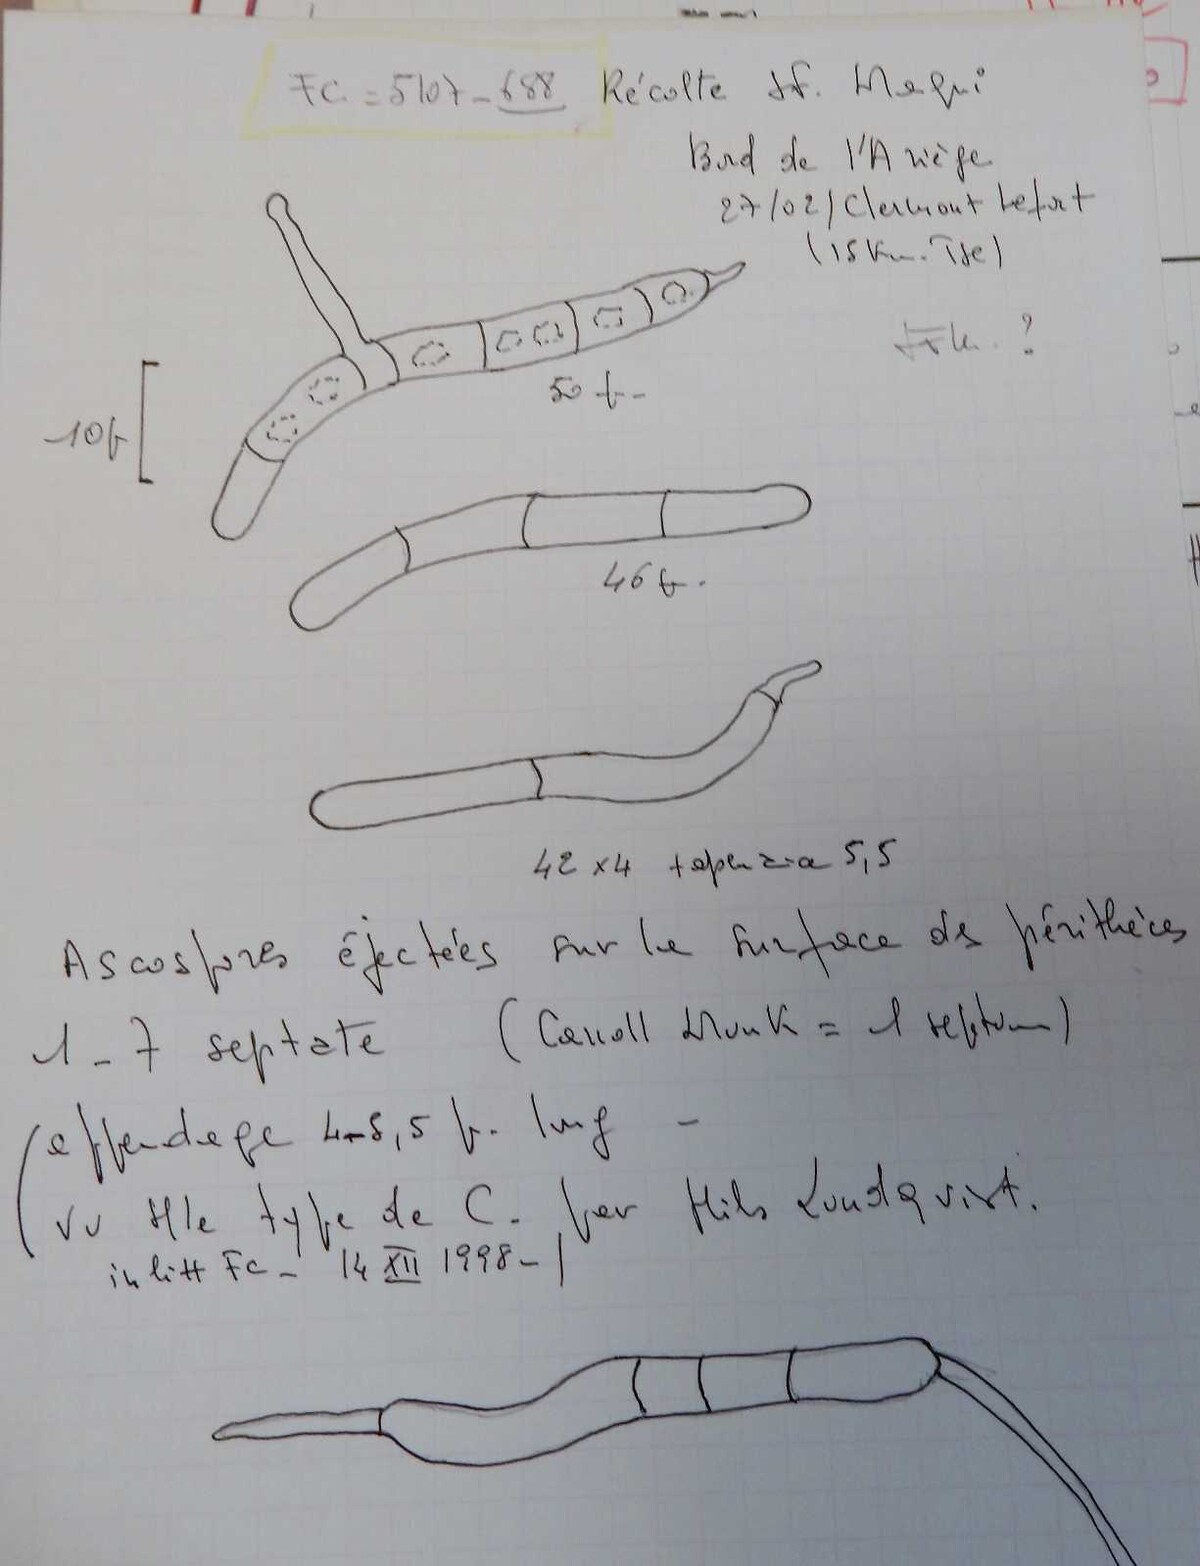 FC = 5107 - 688 Récolte JF. Magni
Bord de l'Ariège
27/02/Clermont Lefort
(15 Km. Tse)
?
10 µ
50 µ -
46 µ.
42 x4 5,5
Ascospores éjectées sur le surface des périthèces
1 - 7 septate (Caroll Munk = 1 septum)
(appendage 4-5,5 µ. long -
vu type de C. par Nils Lundqvist.
in litt FC - 14 XII 1998 - )